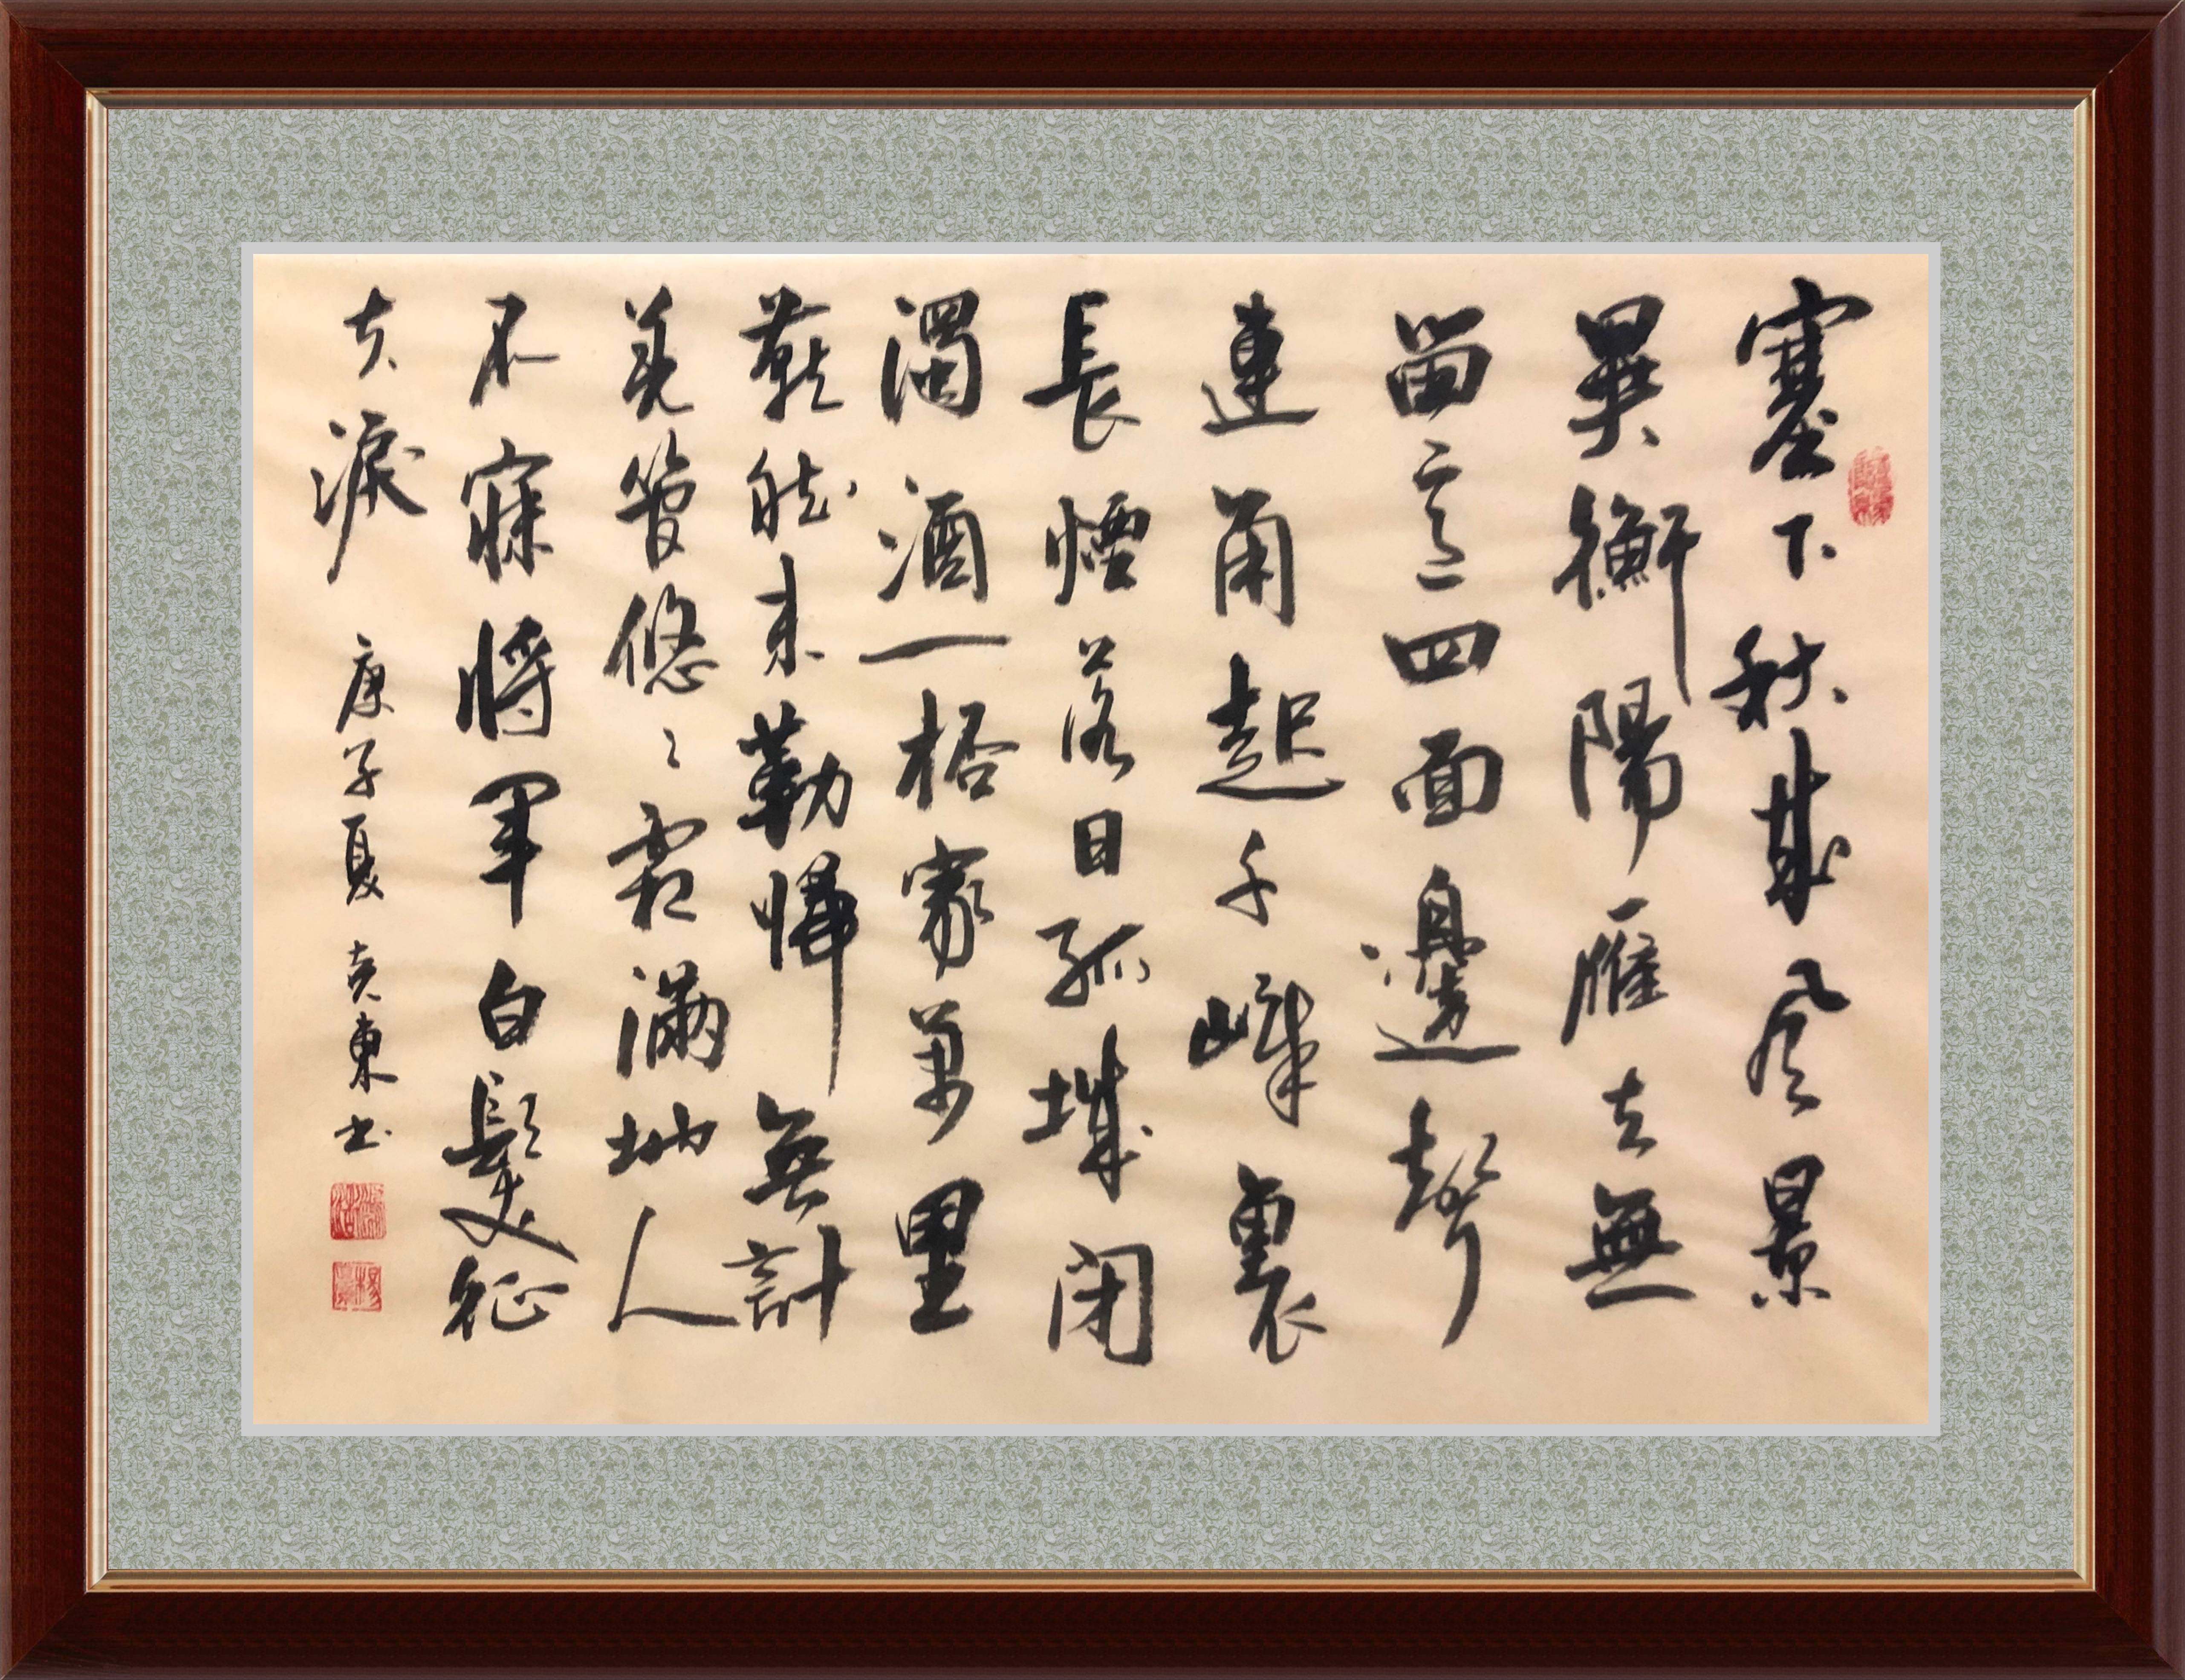 塞下秋來風景
異衡陽雁去無
留意四面邊聲
連角起千嶂裏
長煙落日孤城閉
濁酒一杯家萬里
燕然未勒歸無計
羌管悠〻霜滿地人
不寐將軍白髮征
夫淚 庚子夏 東书